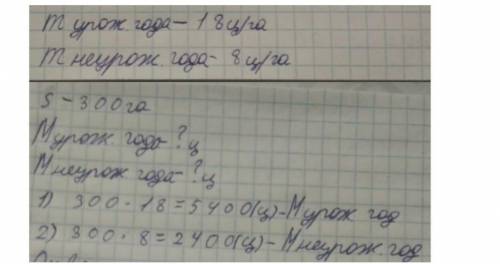 m урож. года - 18 ц/га
m неурож. года - 8 ц/га
S - 300 га
M урож. года - ? ц
M неурож года - ? ц
1) 300 · 18 = 5400 (ц) - M урож год
2) 300 · 8 = 2400 (ц) - M неурож. год